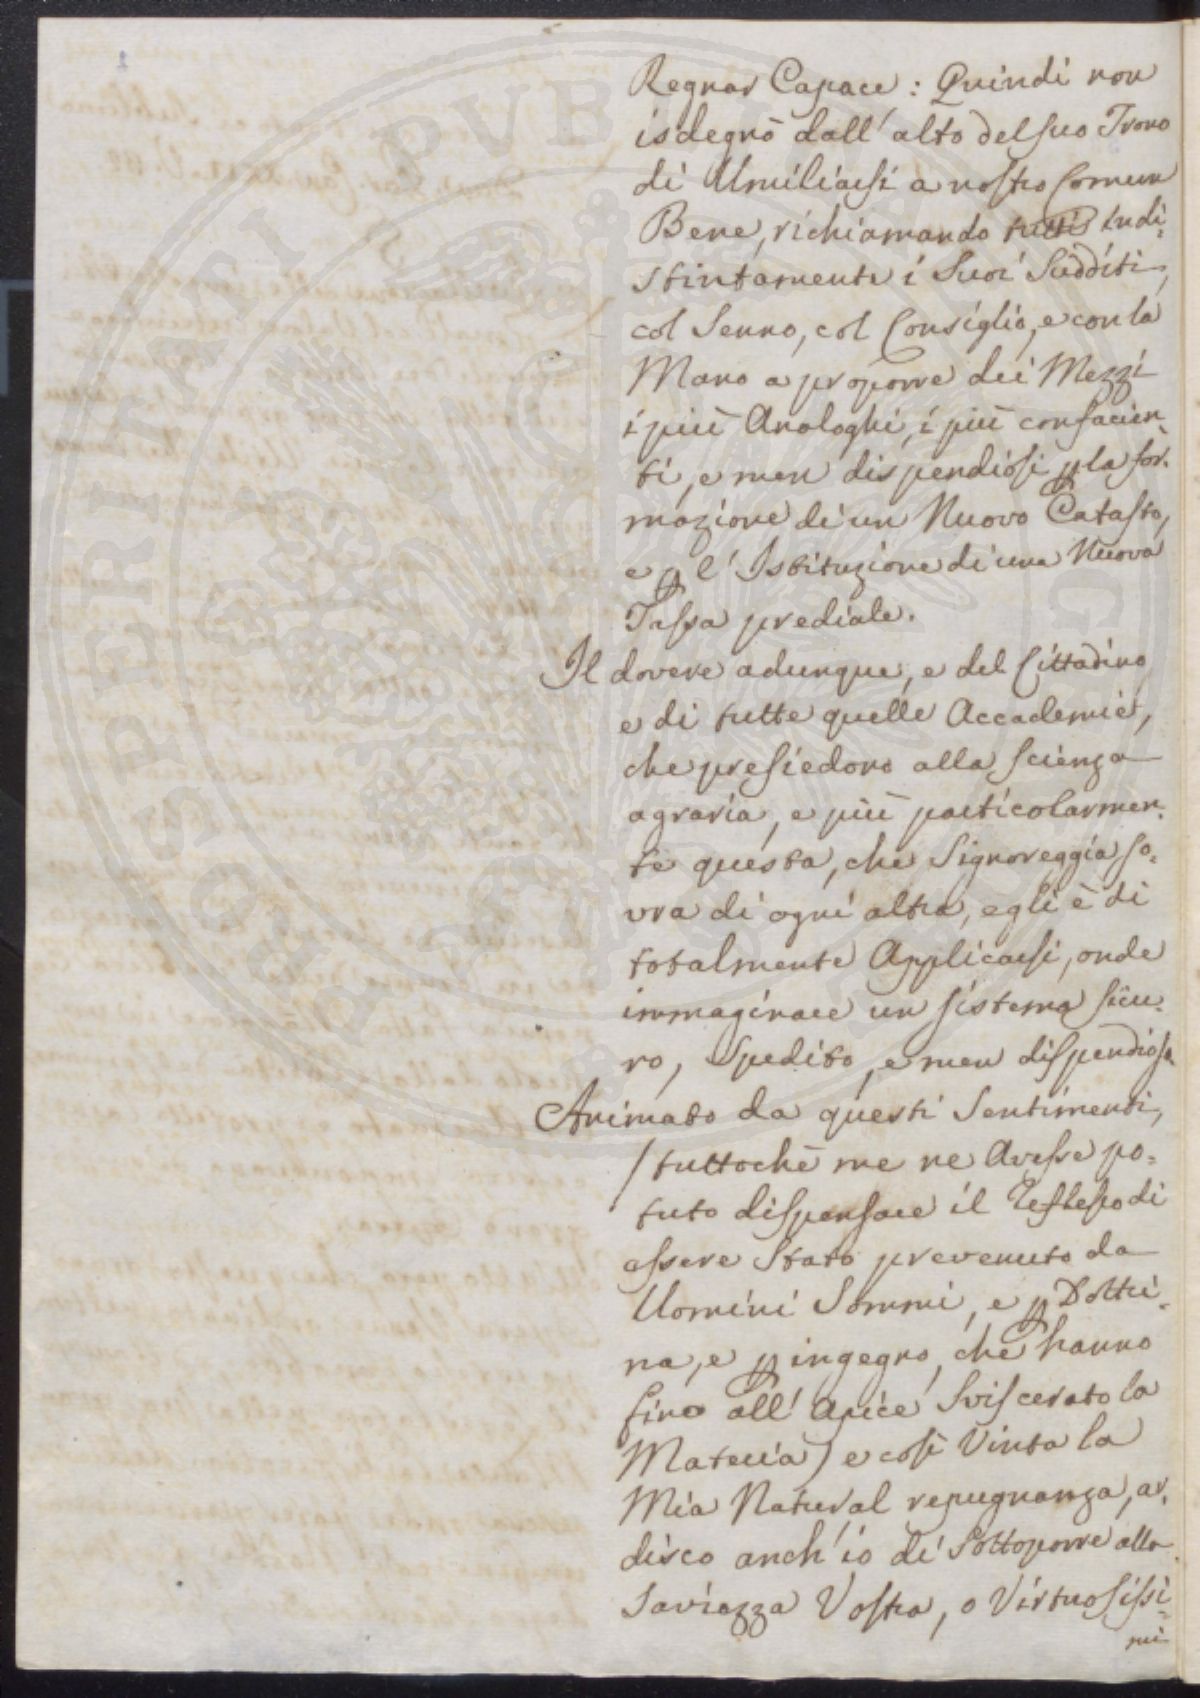 Regnar Capace: Quindi non
isdegnò dall'alto del suo Trono
di Umiliarsi a nostro Comun
Bene, richiamando tutti Indi-
stintamente i Suoi Sudditi,
col Senno, col Consiglio, e con la
Mano a proporre dei Mezzi
i più Analoghi, i più confacien-
ti, e men dispendiosi p la for-
mazione di un Nuovo Catasto,
e p l'Istituzione di una Nuova
Tassa prediale.
Il dovere adunque, e del Cittadino
e di tutte quelle Accademie,
che presiedono alla scienza
agraria, e più particolarmen-
te questa, che Signoreggia so-
vra di ogni altra, egli è di
totalmente Applicarsi, onde
immaginare un sistema sicu-
ro, Spedito, e men dispendioso
Animato da questi Sentimenti,
(tuttochè me ne Avesse po-
tuto dispensare il Reflesso di
essere Stato prevenuto da
Uomini Sommi, e p Dottri-
na, e p ingegno, che hanno
fino all'Apice Sviscerato la
Materia) e così Vinta la
Mia Natural repugnanza, ar-
disco anch'io di Sottoporre alla
Saviezza Vostra, o Virtuosissi-
mi
PROSPERITATI PVBLICAE